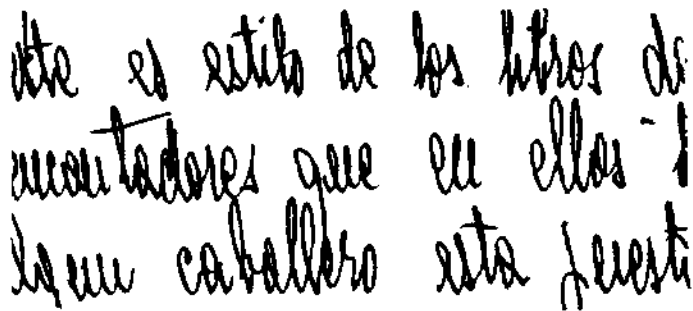 este es estilo de los libros de
encantadores que en ellos
algun caballero esta puest